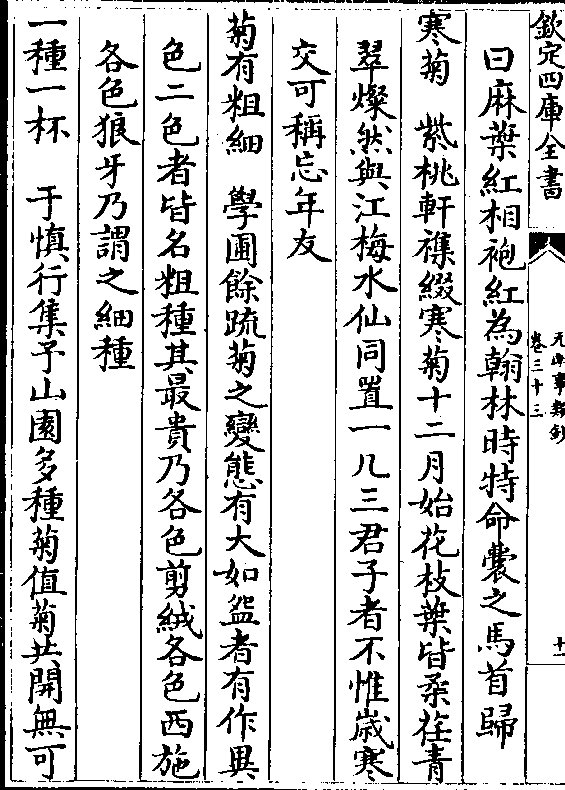 欽定四庫全書
元明事類鈔
卷三十三
十一
曰麻葉紅相袍紅為翰林時特命囊之馬首歸
寒菊　紫桃軒襍綴寒菊十二月始花枝葉皆柔荏青
翠燦然與江梅水仙同置一几三君子者不惟歳寒
交可稱忘年友
菊有粗細　學圃餘疏菊之變態有大如盌者有作異
色二色者皆名粗種其最貴乃各色剪絨各色西施
各色狼牙乃謂之細種
一種一杯　于慎行集予山園多種菊值菊共開無可